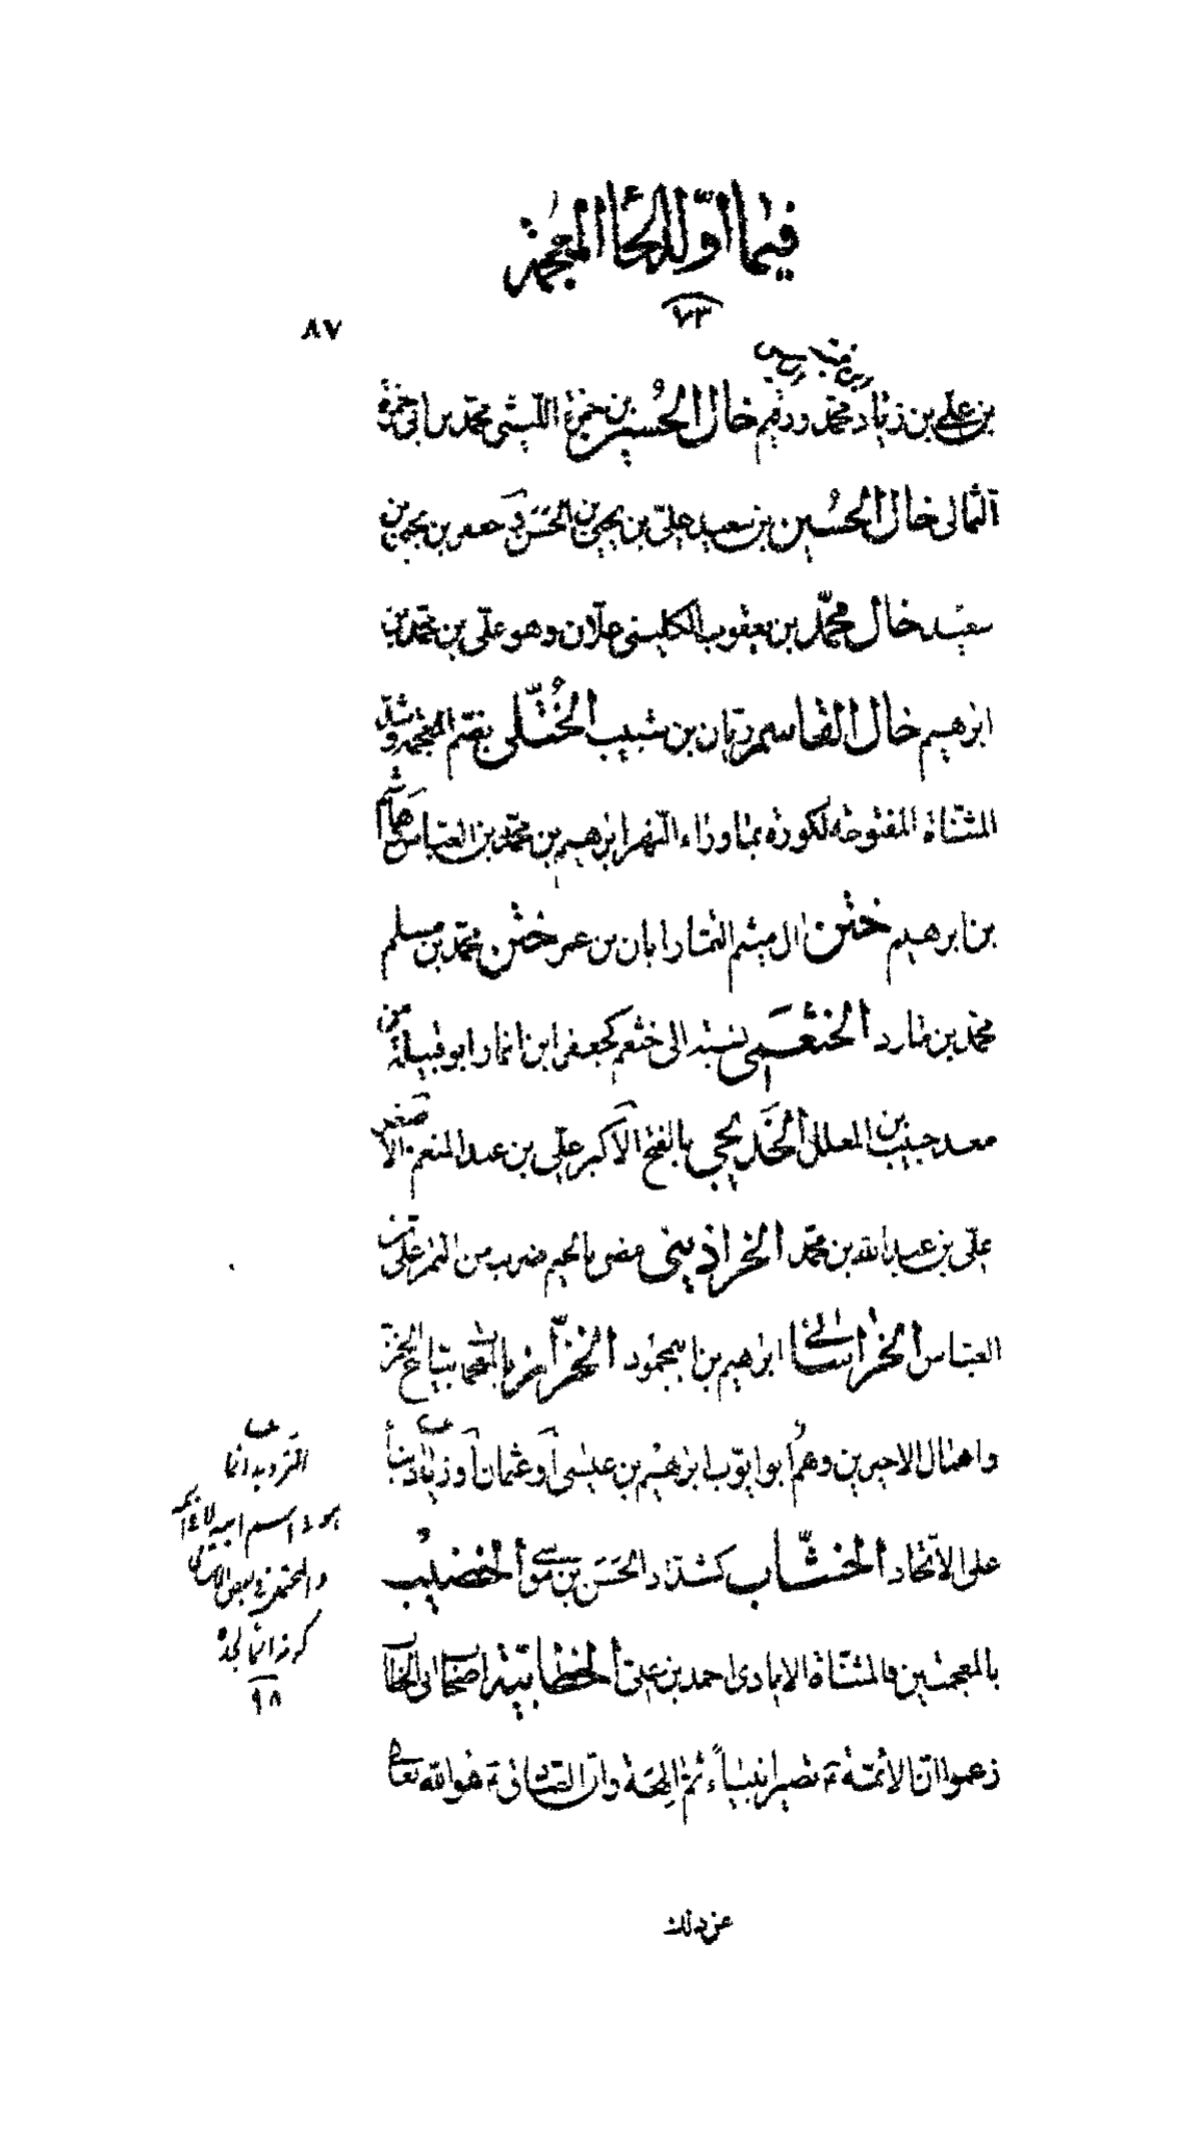 فيما اوّله الخاء المعجمة
٧٣
٨٧
بن علي بن زياد محمّد ورقيم خال الحُسين بن حمزة اللّيثي محمّد بن ابى حمزة
الثمالى خال الحُسين بن سعيد علىّ بن يحيى بن الحَسَن وَ جعفر بن يحيى بن
سعيد خال محمّد بن يعقوب الكلينى علّان وهو علىّ بن محمّد بن
ابرهيم خال القاسم ريّان بن شبيب الخُتّلى بضمّ المعجمة وشدّ
المثنّاة المفتوحة لكورة بما وراء النّهر ابرهيم بن محمّد بن العبّاس هشام
بن ابرهيم ختن ال ميثم التمّار ابان بن عمر ختن محمّد بن مسلم
محمّد بن مارد الخثعَمى نسبة الى خثعم كجعفر ابن انمار ابو قبيلة من
معد حبيب بن المعلل الخَديجى بالفتح الاَكبر علىّ بن عبد المنعم الاَصغر
علىّ بن عبد الله بن محمّد الخراذينى بالجيم ضرب من التمر علىّ بن
العبّاس الخراسانى ابرهيم بن ابيمحمود الخزّاز بالمعجمات بيّاع الخزّ
واهمال الاخيرين وهُم ابو ايّوب ابرهيم بن عيسى اَو عثمان اَو زياد بناءً
على الاتّحاد الخشّاب كشدّاد الحَسَن بن موسى الخضيب
بالمعجمتين فالمثنّاة الايادى احمد بن علىّ الخطّابيّة اصحاب ابى الخطّاب
زعموا انّ الائمّة تم تصير انبياءً ثمّ الهة وانّ الصّادق تم هو الله تعالى
عن ذلك
٩٨